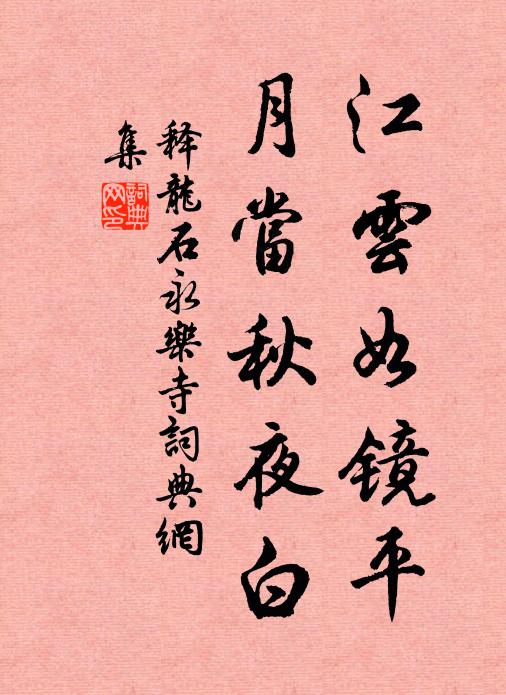 江雲如镜平
月當秋夜白
释龍石永樂寺詞典網
集
詞典網印